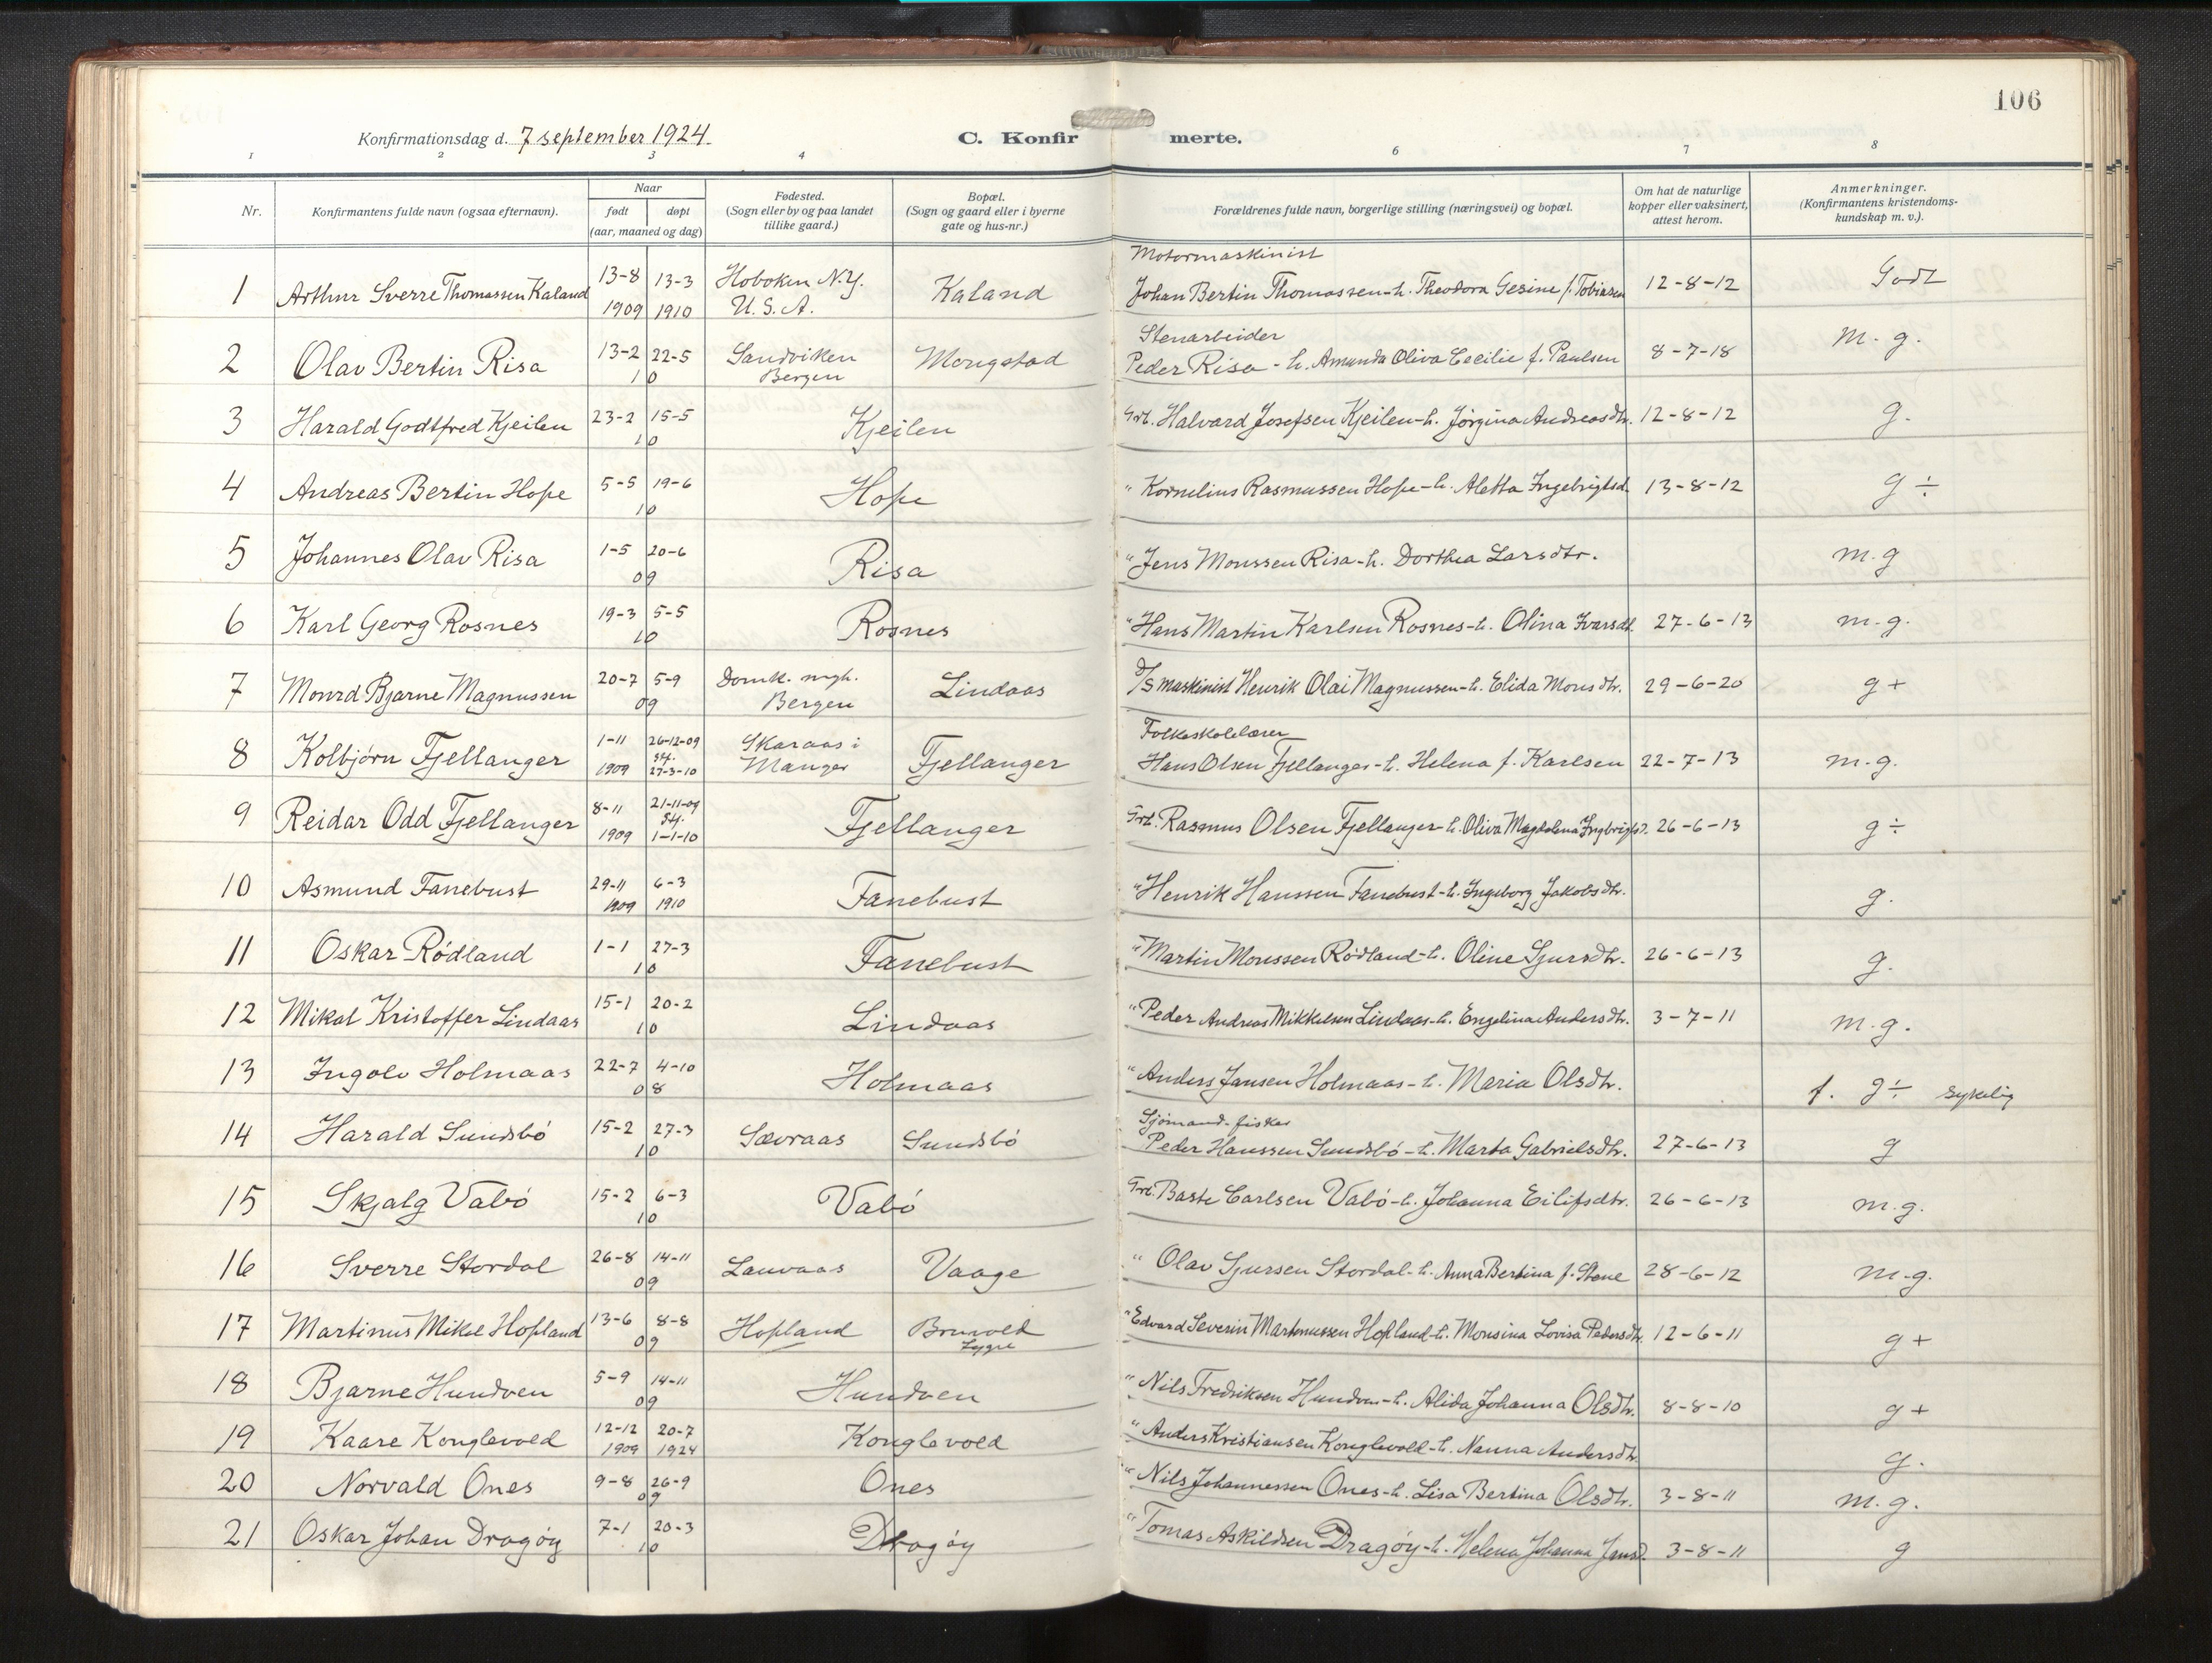 106
Konfirmationsdag d. 7 september 1924.
C. Konfirmerte.
1 2 3 4 6 7 8
Nr. Konfirmantens fulde navn (ogsaa efternavn). Naar født døpt (aar, maaned og dag) Fødested. (Sogn eller by og paa landet tillike gaard.) Bopæl. (Sogn og gaard eller i byerne gate og hus-nr.) Forældrenes fulde navn, borgerlige stilling (næringsvei) og bopæl. Om hat de naturlige kopper eller vaksinert, attest herom. Anmerkninger. (Konfirmantens kristendoms-kundskap m. v.).
1 Arthur Sverre Thomassen Kaland 13-8 1909 13-3 1910 Hoboken N.Y. U.S.A. Kaland Motormaskinist Johan Bertin Thomassen-h. Theodora Gesine f. Tobiasen 12-8-12 Godt
2 Olav Bertin Risa 13-2 22-5 10 Sandviken Bergen Mongstad Stenarbeider Peder Risa - h. Amunda Oliva Cecilie f. Paulsen 8-7-18 M. g.
3 Harald Godtfred Kjeilen 23-2 15-5 10 Kjeilen Grb. Halvard Josefsen Kjeilen-h. Jørgina Andreasdtr. 12-8-12 g.
4 Andreas Bertin Hope 5-5 19-6 10 Hope " Kornelius Rasmussen Hope-h. Aletta Ingebrigtsd. 13-8-12 g ÷
5 Johannes Olav Risa 1-5 20-6 09 Risa " Jens Monssen Risa-h. Dorthea Larsdtr. m.g
6 Karl Georg Rosnes 19-3 5-5 10 Rosnes " Hans Martin Karlsen Rosnes-h. Olina Ivarsdt. 27-6-13 m.g.
7 Monrd Bjarne Magnussen 20-7 5-9 09 Domk. mgh. Bergen Lindaas D/S maskinist Henrik Olai Magnussen-h. Elida Monsdtr. 29-6-20 g +
8 Kolbjørn Fjellanger 1-11 1909 26-12-09 stf. 27-3-10 Skaraas i Manger Fjellanger Folkeskolelærer Hans Olsen Fjellanger-h. Helena f. Karlsen 22-7-13 m.g.
9 Reidar Odd Fjellanger 8-11 1909 21-11-09 stf. 1-1-10 Fjellanger Grb. Rasmus Olsen Fjellanger-h. Oliva Magdalena Ingbrigtsd. 26-6-13 g ÷
10 Asmund Fanebust 29-11 1909 6-3 1910 Fanebust " Henrik Hanssen Fanebust-h. Ingeborg Jakobsdtr. g.
11 Oskar Rødland 1-1 27-3 10 Fanebust " Martin Monssen Rødland-h. Oline Sjursdtr. 26-6-13 g.
12 Mikal Kristoffer Lindaas 15-1 20-2 10 Lindaas " Peder Andreas Mikkelsen Lindaas-h. Engelina Andersdtr. 3-7-11 m.g.
13 Ingolv Holmaas 22-7 4-10 08 Holmaas " Anders Jansen Holmaas-h. Maria Olsdtr. f. g ÷ sykelig
14 Harald Sundsbø 15-2 27-3 10 Sævraas Sundsbø Sjömand-fisker Peder Hanssen Sundsbø-h. Marta Gabrielsdtr. 27-6-13 g
15 Skjalg Vabø 15-2 6-3 10 Vabø Grb. Baste Carlsen Vabø-h. Johanna Eilifsdtr. 26-6-13 m.g.
16 Sverre Stordal 26-8 14-11 09 Lauvaas Vaage " Olav Sjursen Stordal-h. Anna Bertina f. Stene 28-6-12 m.g.
17 Martinus Mikal Hopland 13-6 8-8 09 Hopland Brunvold Lygre " Edvard Severin Martinussen Hopland-h. Monsina Lovisa Pedersdtr. 12-6-11 g +
18 Bjarne Hundven 5-9 14-11 09 Hundven " Nils Fredriksen Hundven-h. Alida Johanna Olsdtr. 8-8-10 g +
19 Kaare Konglevold 12-12 1909 20-7 1924 Konglevold " Anders Kristiansen Konglevold-h. Nanna Andersdtr. g.
20 Norvald Ones 9-8 26-9 09 Ones " Nils Johannessen Ones-h. Lisa Bertina Olsdtr. 3-8-11 m.g.
21 Oskar Johan Dragøy 7-1 20-3 10 Dragøy " Tomas Askildsen Dragøy-h. Helena Johanna Jansd. 3-8-11 g